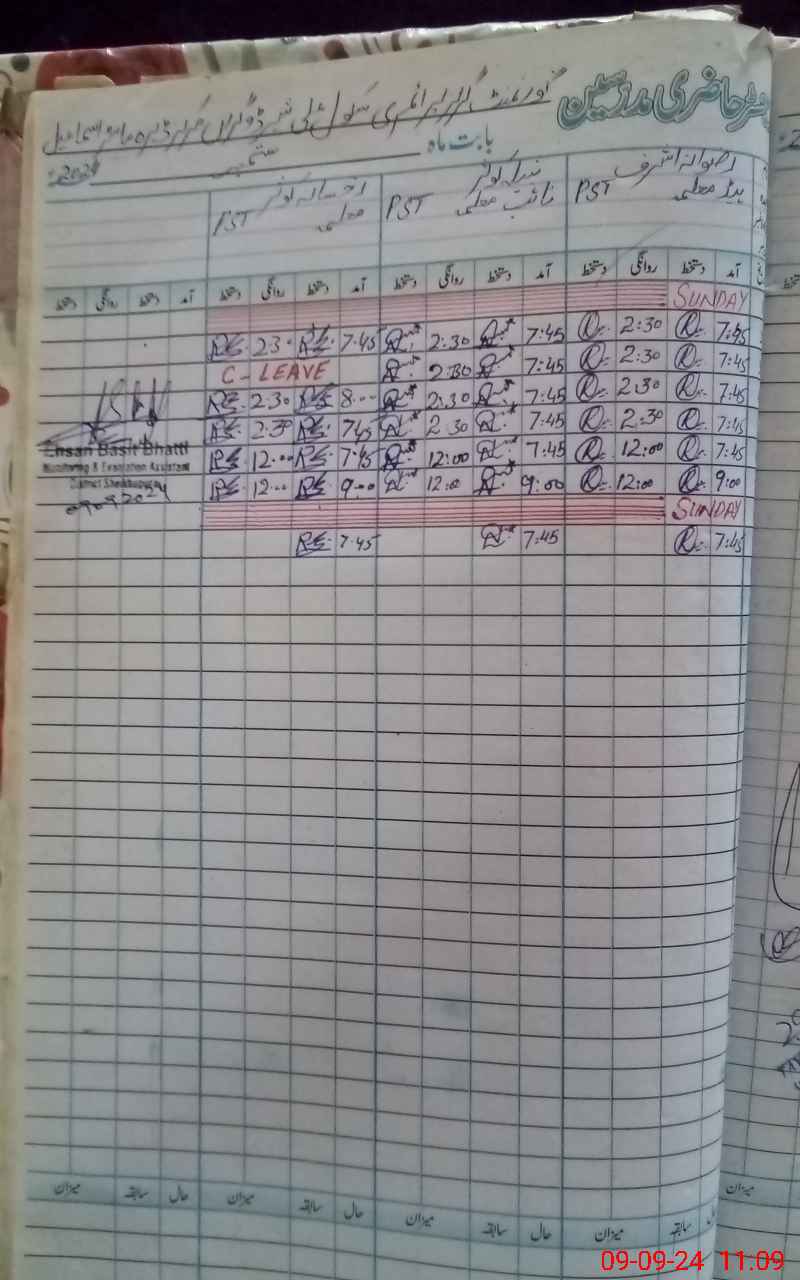 رجسٹر حاضری مدرسین
گورنمنٹ گرلز پرائمری سکول
بابت ماہ ستمبر 2024ء
رضوانہ اشرف
ہیڈ معلمہ PST
کوثر
نائب معلمہ PST
کوثر
معلمہ PST
آمد دستخط روانگی دستخط آمد دستخط روانگی دستخط آمد دستخط روانگی دستخط آمد دستخط روانگی دستخط
SUNDAY
7:45 2:30 7:45 2:30 7.45 2.30
7:45 2:30 7:45 2:30 C - LEAVE
7:45 2:30 7:45 2:30 8.00 2.30
7:45 2:30 7:45 2:30 7.45 2.30
7:45 12:00 7:45 12:00 7.45 12.00
9:00 12:00 9:00 12:00 9.00 12.00
SUNDAY
7:45 7:45 7.45
Ehsan Basit Bhatti
Monitoring & Evaluation Assistant
District Sheikhupura
09092024
حال سابقہ میزان حال سابقہ میزان حال سابقہ میزان حال سابقہ میزان
میزان
09-09-24 11.09